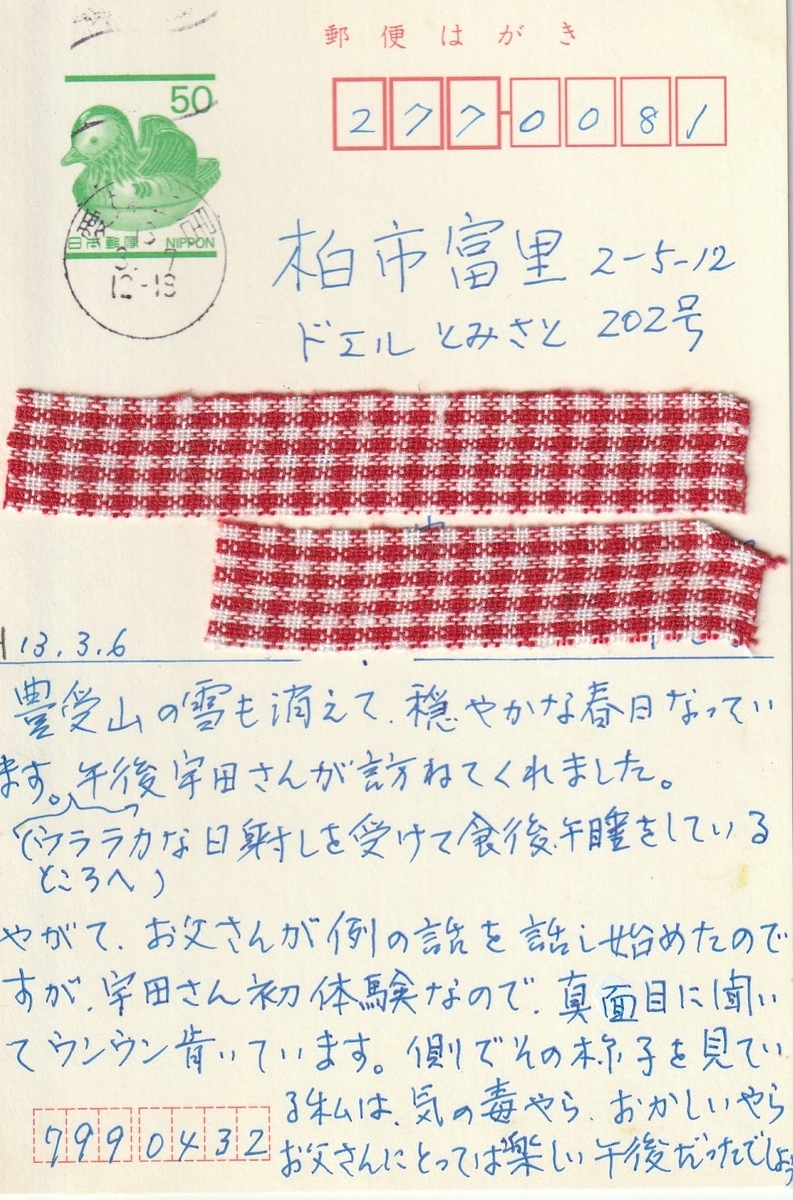 郵便はがき
50
日本郵便 NIPPON
13
3. 7
12-18
277-0081
柏市富里 2-5-12
ドエルとみさと 202号
H13.3.6
豊受山の雪も消えて、穏やかな春日なってい
ます。午後宇田さんが訪ねてくれました。
(ウララカな日射しを受けて食後、午睡をしている
ところへ)
やがて、お父さんが例の話を話し始めたので
すが、宇田さん初体験なので、真面目に聞い
てウンウン肯いています。側でその様子を見てい
る私は、気の毒やら、おかしいやら
お父さんにとっては楽しい午後だったでしょう
7990432